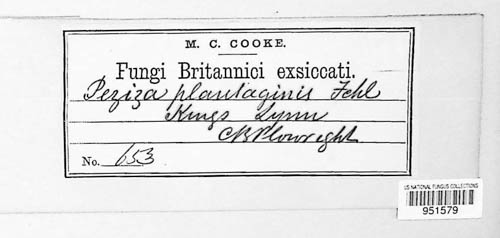 M. C. COOKE.
Fungi Britannici exsiccati.
Peziza plantaginis Fckl
Kings Lynn
C B Plowright
No. 653
US NATIONAL FUNGUS COLLECTIONS
951579